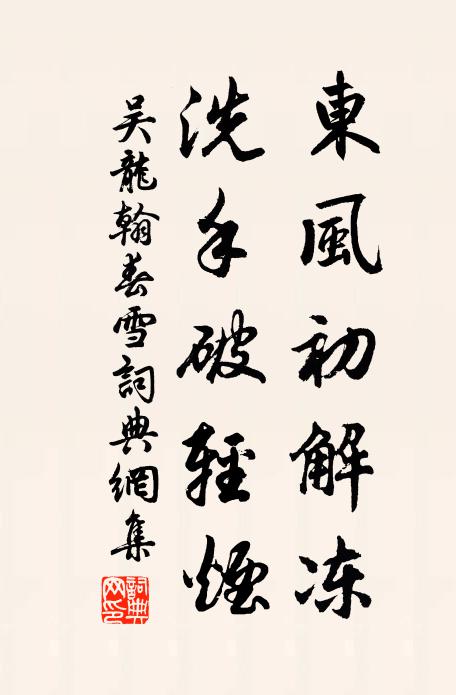 東風初解凍
洗手破輕煙
吴龍翰春雪詞典網集
詞典网印